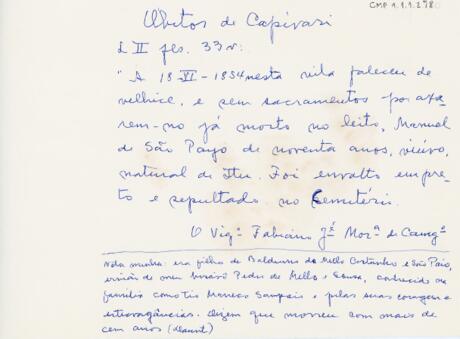 CMP 1.1.1.298
Obitos de Capivari
L II fls. 33v:
"A 18-VI-1854 nesta vila faleceu de
velhice, e sem sacramentos por axa-
rem-no já morto no leito, Manuel
de São Payo de noventa anos, viúvo,
natural de Itu. Foi envolto em pre-
to e sepultado no Cemitério.
O Vigº Fabiano Jé Morª de Camgº
Nota minha: era filho de Balduino de Mello Castanho e São Paio,
irmão de meu bisavô Pedro de Mello e Souza, conhecido na
família como Tio Maneco Sampaio e pelas suas coragem e
extravagâncias. Dizem que morreu com mais de
cem anos